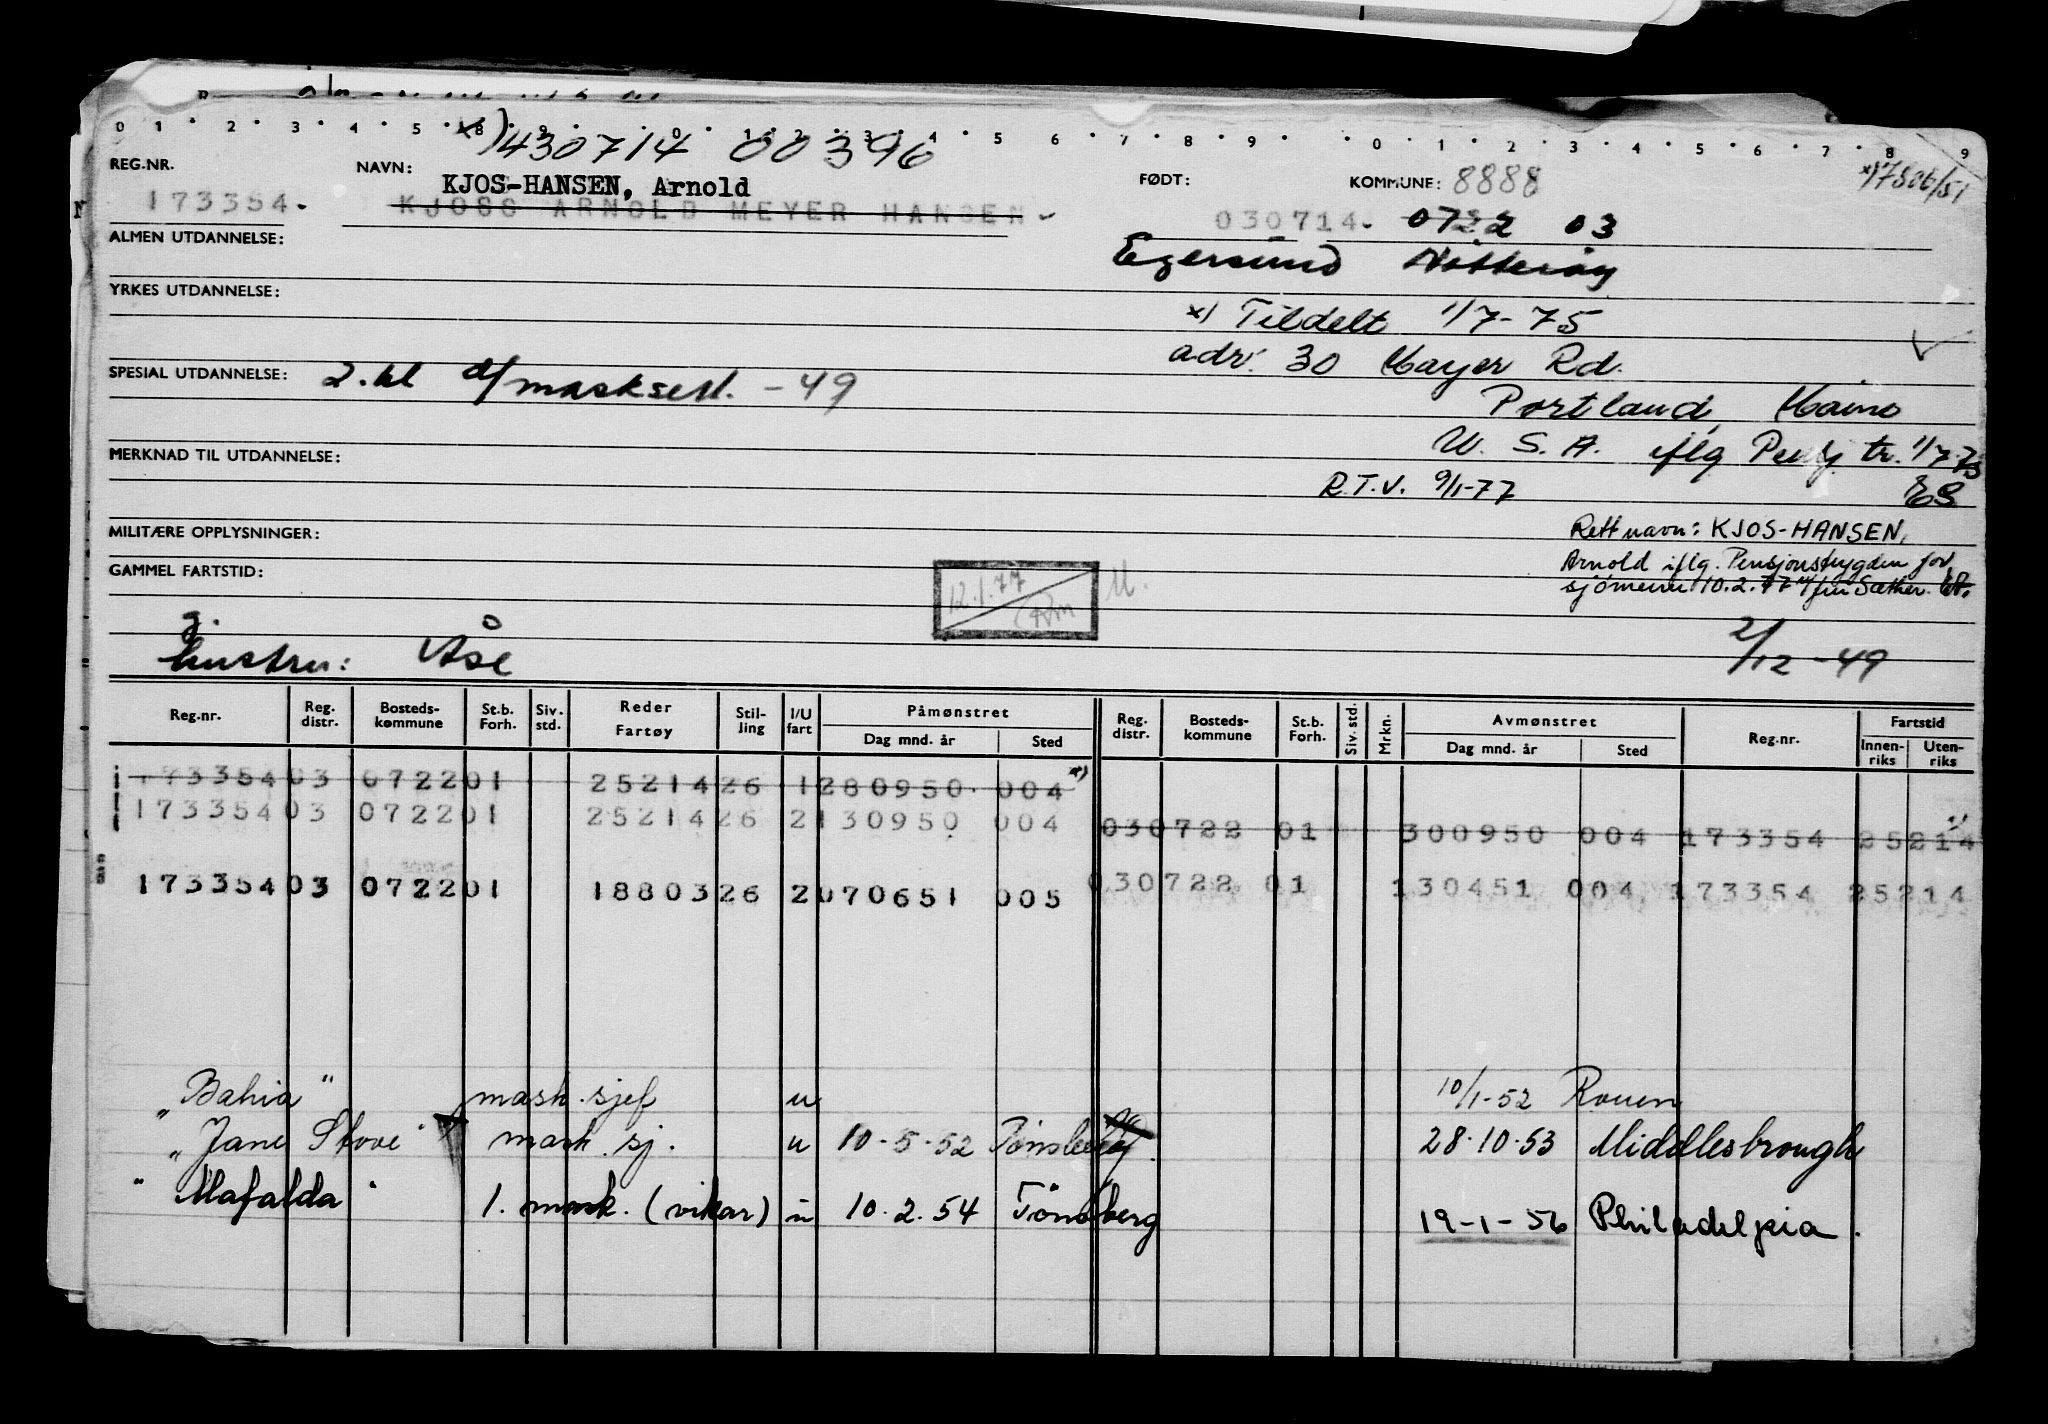 0 1 2 3 4 5 6 7 8 9 0 1 2 3 4 5 6 7 8 9 0 1 2 3 4 5 6 7 8 9
x) 430714 00396
REG.NR. NAVN: FØDT: KOMMUNE: 8888 x) 17506/51
KJOS-HANSEN, Arnold
173354. KJOSS ARNOLD MEYER HANSEN. 030714. 0722 03
ALMEN UTDANNELSE: Egersund Nøtterøy
YRKES UTDANNELSE:
x) Tildelt 1/7-75
adr. 30 Mayer Rd.
SPESIAL UTDANNELSE: 2. kl d/masksert. -49
Portland, Maine
U. S. A. iflg Pensj tr. 1/7-75
MERKNAD TIL UTDANNELSE:
R.T.V. 9/1-77 ES
MILITÆRE OPPLYSNINGER: Rett navn: KJOS-HANSEN,
GAMMEL FARTSTID: Arnold iflg. Pensjonstrygden for
sjømenn 10.2.77 v/fru Sæther.
12.1.77
g.
hustru: Åse 2/12-49
Reg.nr. Reg. distr. Bosteds- kommune St.b. Forh. Siv. std. Reder Fartøy Stil- ling I/U fart Påmønstret Dag mnd. år Sted Reg. distr. Bosteds- kommune St.b. Forh. Siv. std. Mrkn. Avmønstret Dag mnd. år Sted Reg.nr. Fartstid Innen- riks Uten- riks
173354 03 0722 01 25214 26 1 280950. 004 x)
173354 03 0722 01 25214 26 2 130950 004 03 0722 01 300950 004 173354 25214
173354 03 0722 01 18803 26 2 070651 005 03 0722 01 130451 004 173354 25214
"Bahia" mask.sjef u 10/1-52 Rouen
"Jane Stove" mask. sj. u 10-5-52 Tønsberg. 28.10.53 Middlesbrough
"Mafalda" 1. mask. (vikar) u 10.2.54 Tönsberg 19-1-56 Philadelpia.